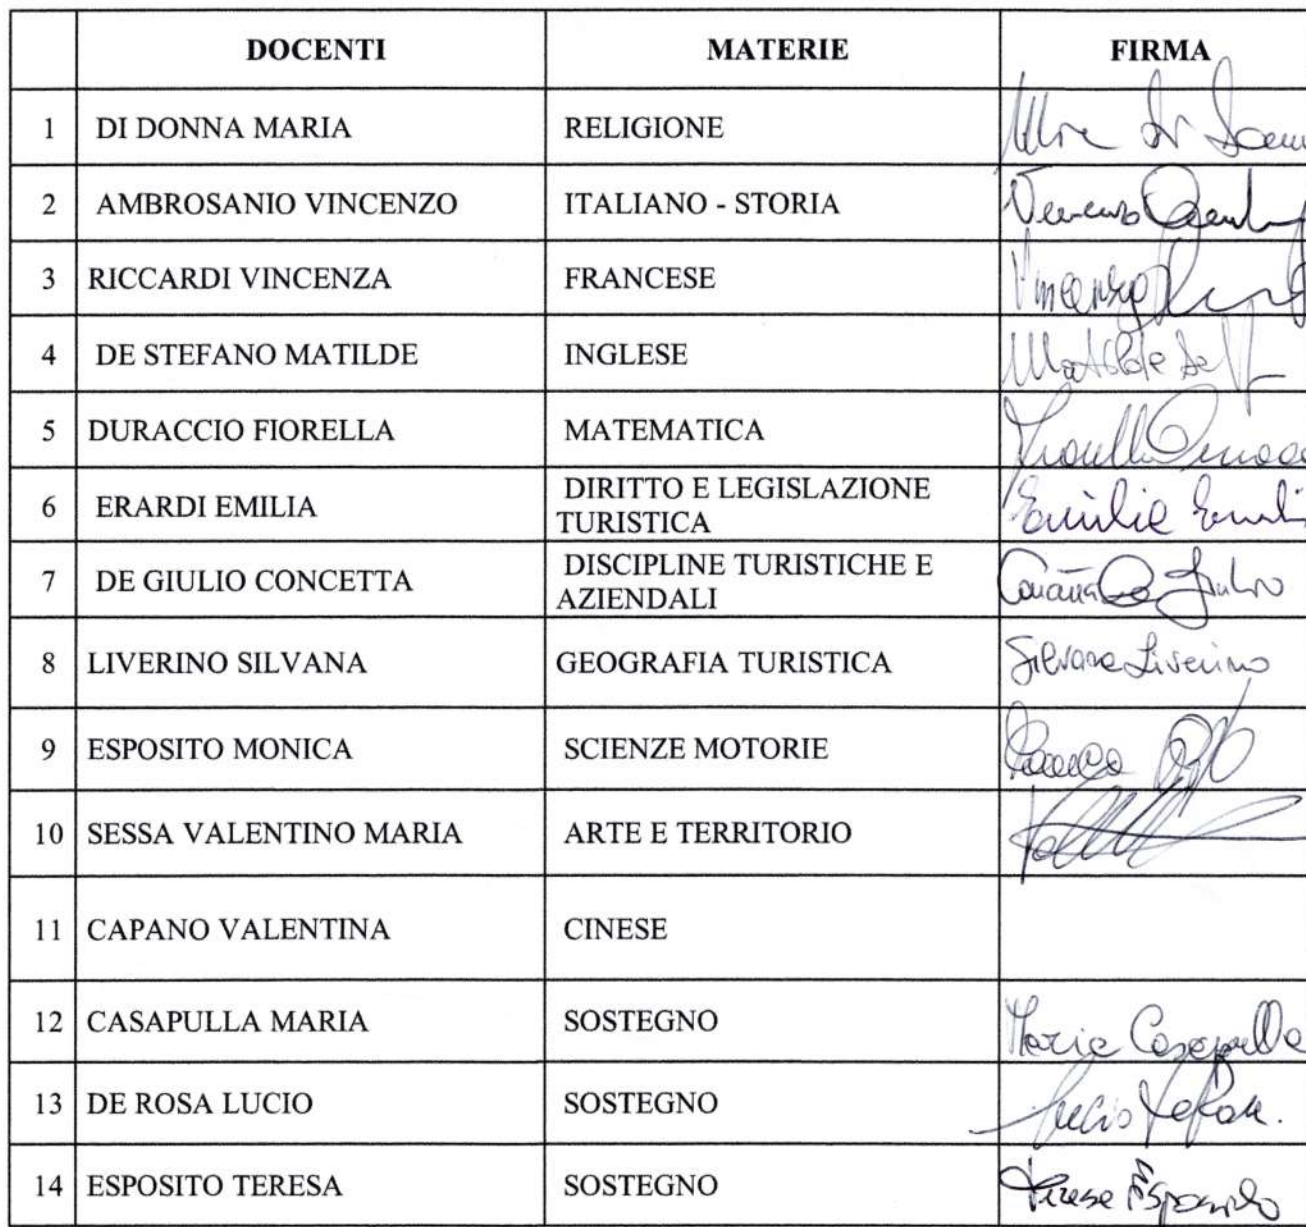 DOCENTI MATERIE FIRMA
1 DI DONNA MARIA RELIGIONE
2 AMBROSANIO VINCENZO ITALIANO - STORIA
3 RICCARDI VINCENZA FRANCESE
4 DE STEFANO MATILDE INGLESE Matilde
5 DURACCIO FIORELLA MATEMATICA
6 ERARDI EMILIA DIRITTO E LEGISLAZIONE
TURISTICA Emilia
7 DE GIULIO CONCETTA DISCIPLINE TURISTICHE E
AZIENDALI
8 LIVERINO SILVANA GEOGRAFIA TURISTICA Silvana Liverino
9 ESPOSITO MONICA SCIENZE MOTORIE
10 SESSA VALENTINO MARIA ARTE E TERRITORIO
11 CAPANO VALENTINA CINESE
12 CASAPULLA MARIA SOSTEGNO Maria Casapulla
13 DE ROSA LUCIO SOSTEGNO Lucio
14 ESPOSITO TERESA SOSTEGNO Teresa Esposito